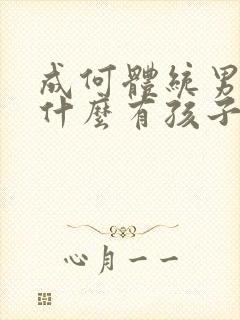 成何體統男
什麼有孩子
心月一一